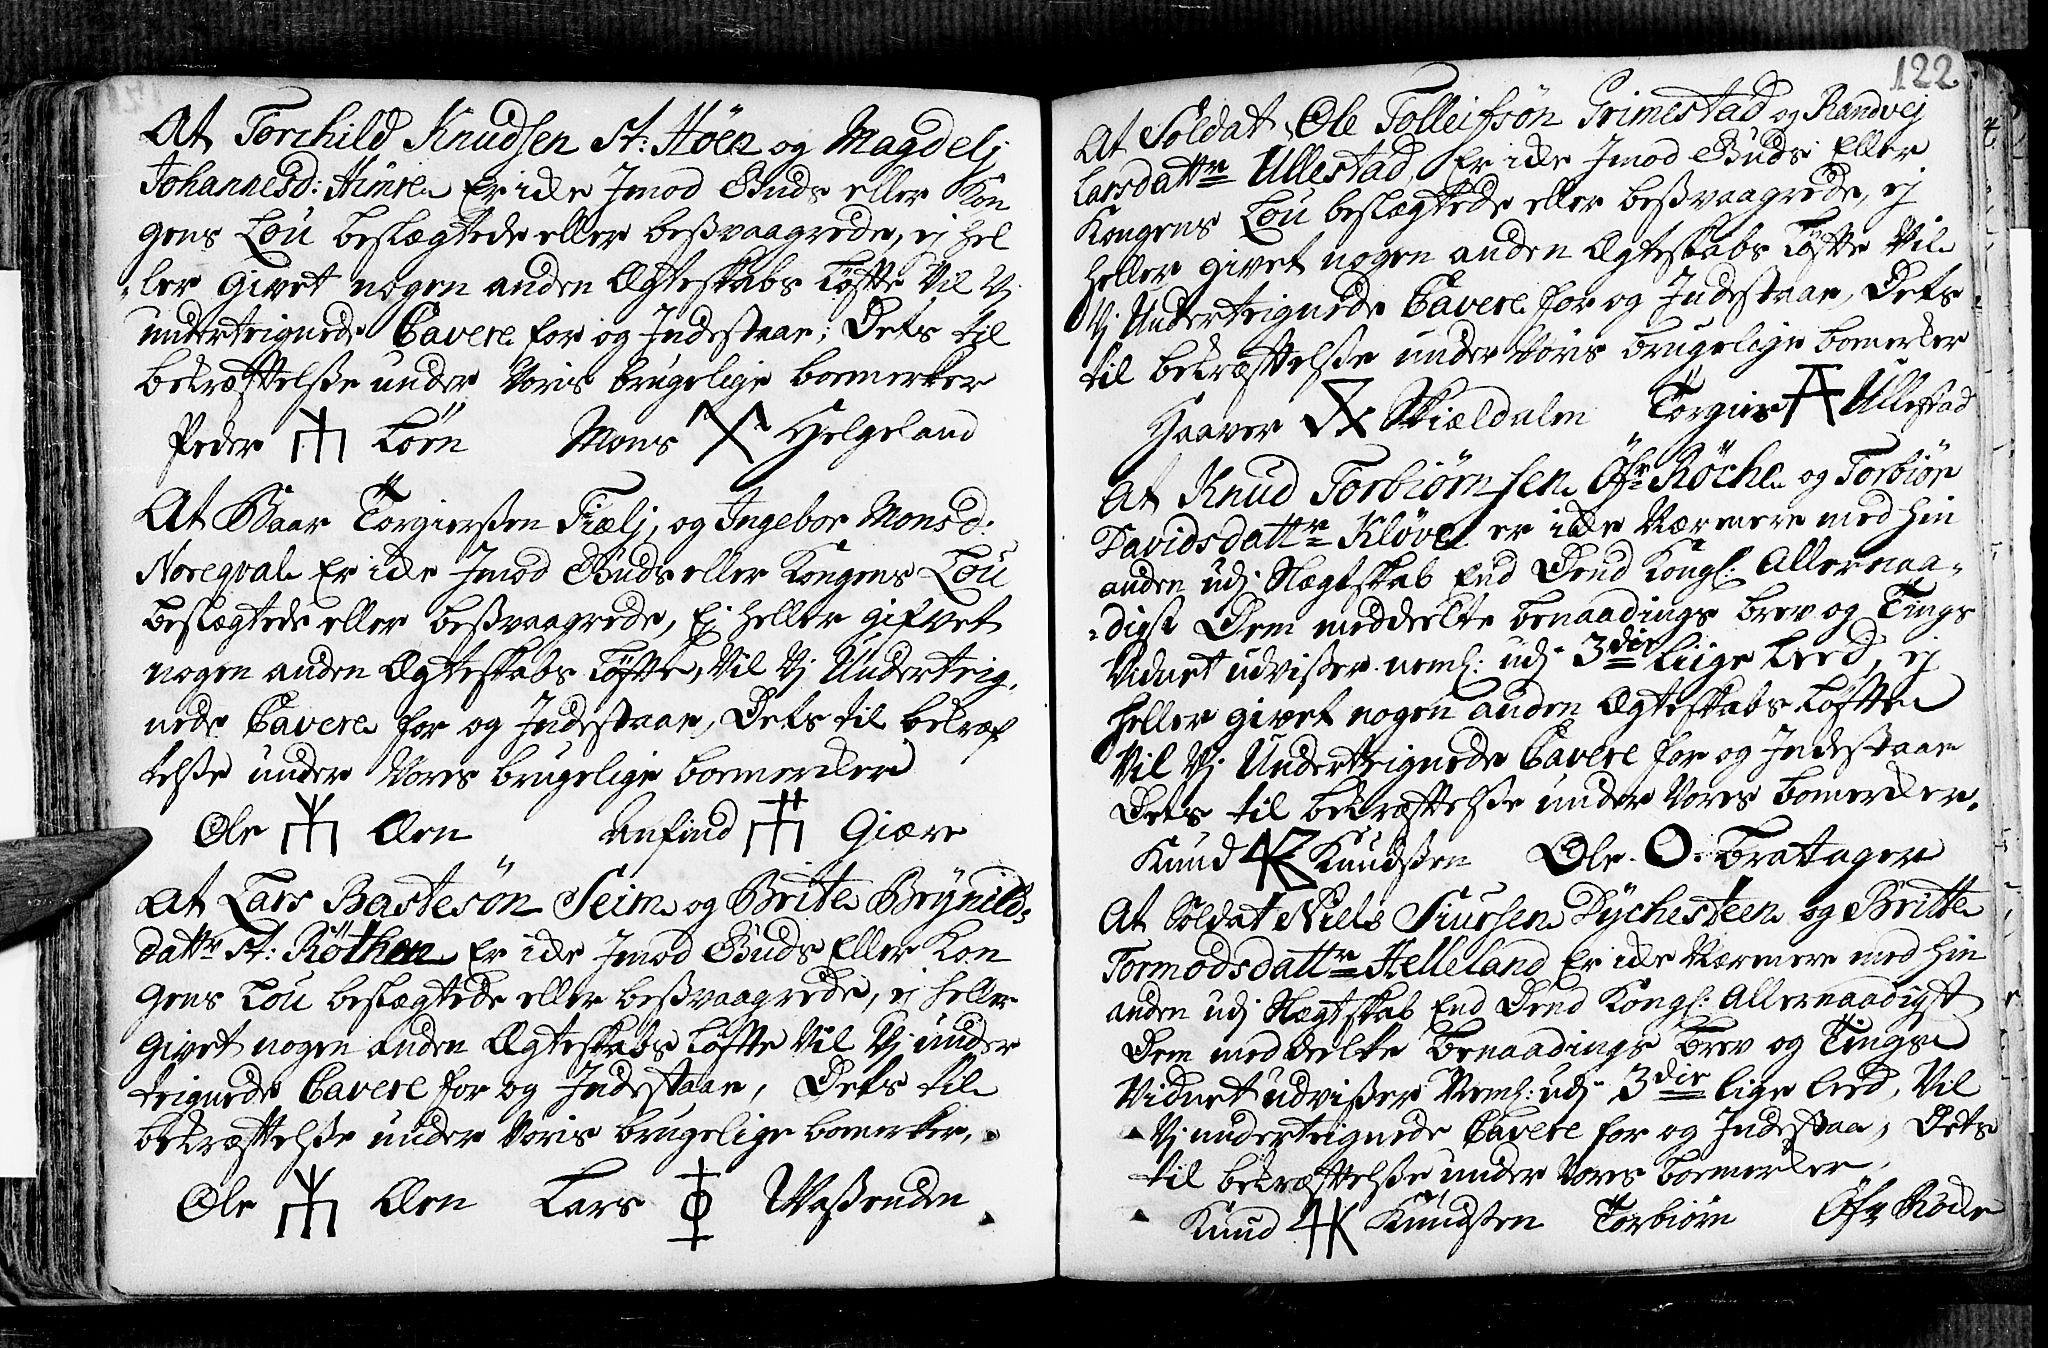 At Torchild Knudsen St: Höen og Magdelj
Johannesd: Himle Er icke Jmod Guds eller Kon
gens Lou beslægtede eller beßvaagrede, ej hel
ler Givet nogen anden Ægteskabs Løfte Vil Vj
underteignede Cavere for og Jndestaae; Dets til
bekræfttelsße under Voris brugelige boemerker
Peder Löen Mons Helgeland
At Baar Törgierßen Fiælj, og Ingebor Monsd:
Noreqval Er icke Jmod Guds eller Kongens Lou
beslægtede eller beßvaagrede, Ej heller gifvet
nogen anden Ægteskabs Løfte, Vil Vj Underteig,
nede Cavere for og Jndestaae, Dets til bekræf
telsße under Vores brugelige boemercker
Ole Æen Anfind Giære
At Lars Bastesön Seim og Brite Brÿnilds
dattr St: Röthen Er icke Jmod Guds Eller Kon
gens Lou beslægtede eller beßvaagrede, ej heller
Givet nogen anden Ægteskabs Løfte Vil Vj under
teignede Cavere for og Jndestaae, Dets til
bekræfttelsße under Voris brugelige bomerker,
Ole Æen Lars Waßenden
122
At Soldat Ole Tolleifsön Grimestad og Randvej
Larsdattr Ullestad, Er icke Jmod Guds Eller
Kongens Lou beslægtede eller beßvaagrede, ej
heller givet nogen anden Ægteskabs Løfte Vil
Vj Underteignede Cavere for og Jndestaae, Dets
til bekræfttelsße under Voris brugelige bomerker
Haaver Skieldalen Törgier Ullestad
At Knud Torbiörnsen Öfr Röche og Torbiör
Davidsdattr Klöve er icke Nærmere med hin
anden udj Slægtskab End Dend Kongl: Allernaa-
digst Dem meddeelte benaadings brev og Tings
Vidnet udvißer neml: udj 3die liige Leed, ej
heller givet nogen anden Ægteskabs Løfte
Vil Vj Underteignede Cavere for og Jndestaae
Dets til bekræfttelsße under Vores bomercker.
Knud Knudßen Ole O Bratager
At Soldat Niels Siursen Dÿchesteen og Britte
Tormodsdattr Helleland Er icke Nærmere med hin
anden udj Slægtskab End Dend Kongl: Allernaadigst
Dem meddeelte Benaadings Brev og Tings
Vidnet udvißer Neml: udj 3die lige leed, Vil
Vj underteignede Cavere for og Jndestaae, Dets
til bekræfttelsße under Vores boemercker,
Knud Knudßen Torbiörn Öfr Röcke